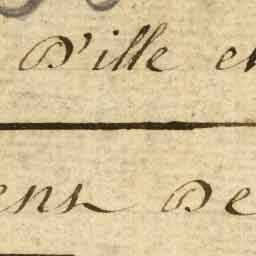 D'ille et
ens De